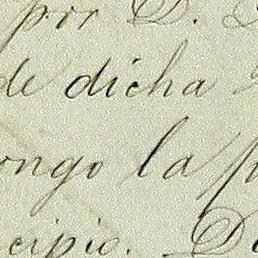 por D.
de dicha
ongo la p
cipio. De